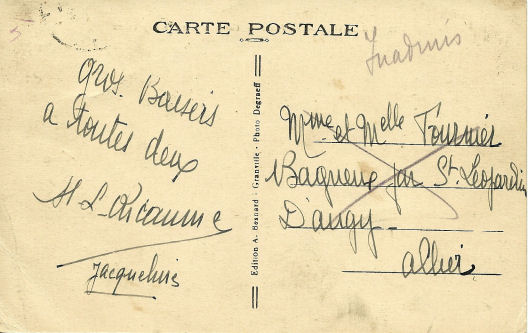 CARTE POSTALE
Inadmis
Gros Baisers
a toutes deux
Jacqueline
Edition A. Besnard - Granville - Photo Degraeff
Mme et Melle Fournier
Bagneux par St. Leopardin
D'augy-
allier